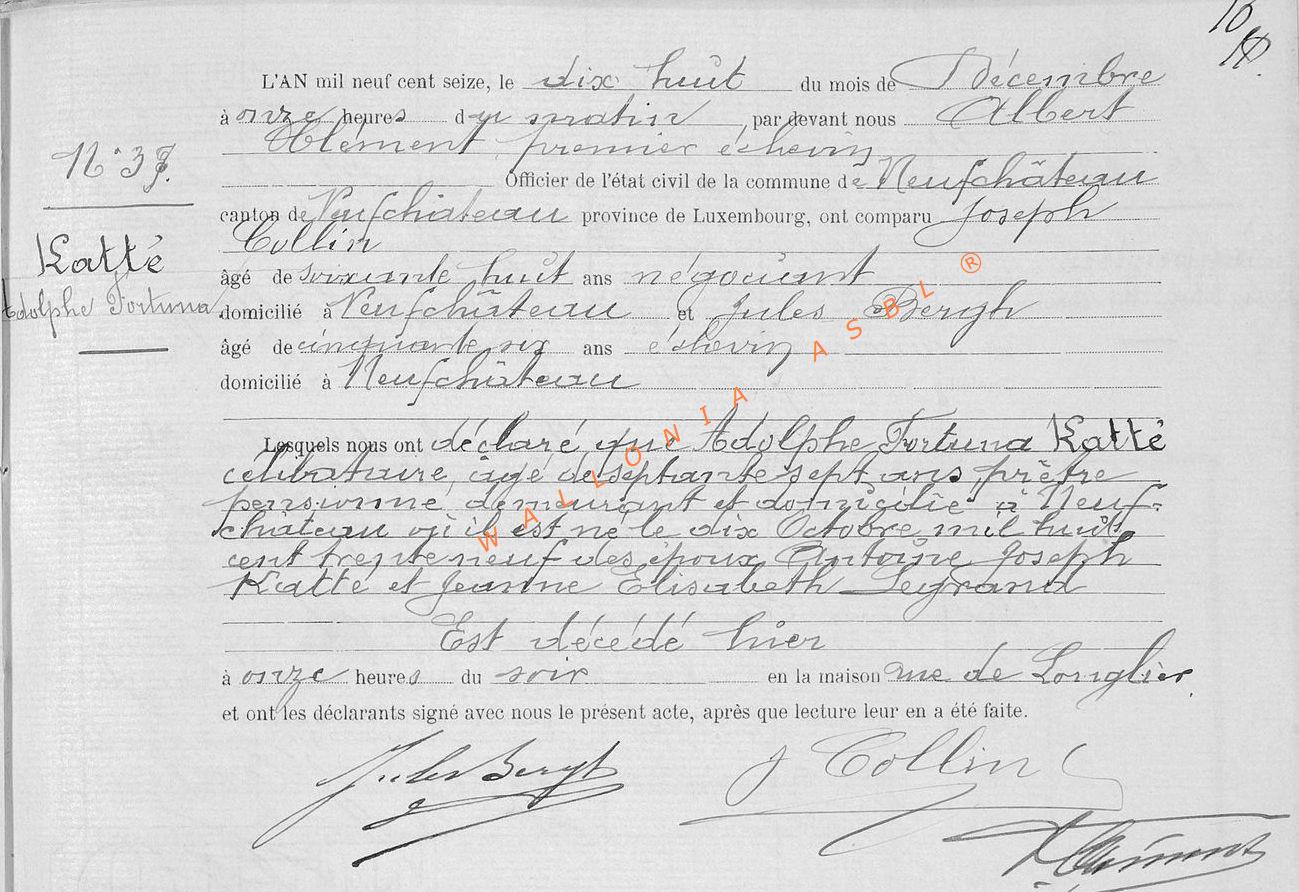 18
L'AN mil neuf cent seize, le dix huit du mois de Décembre
à onze heures du matin, par devant nous Albert
Clément premier échevin
N° 37.
Officier de l'état civil de la commune de Neufchâteau
canton de Neufchâteau province de Luxembourg, ont comparu Joseph
Collin
Katté
Adolphe Fortuna
âgé de soixante huit ans négociant
domicilié à Neufchâteau et Jules Bergh
âgé de cinquante six ans échevin
domicilié à Neufchâteau
WALLONIA ASBL ®
Lesquels nous ont déclaré que Adolphe Fortuna Katté
célibataire, âgé de septante sept ans, prêtre
pensionné, demeurant et domicilié à Neuf-
château où il est né le dix Octobre mil huit
cent trente neuf des époux Antoine Joseph
Katté et Jeanne Elisabeth Legrand
Est décédé hier
à onze heures du soir en la maison rue de Longlier
et ont les déclarants signé avec nous le présent acte, après que lecture leur en a été faite.
Jules Bergh
J Collin
A. Clément